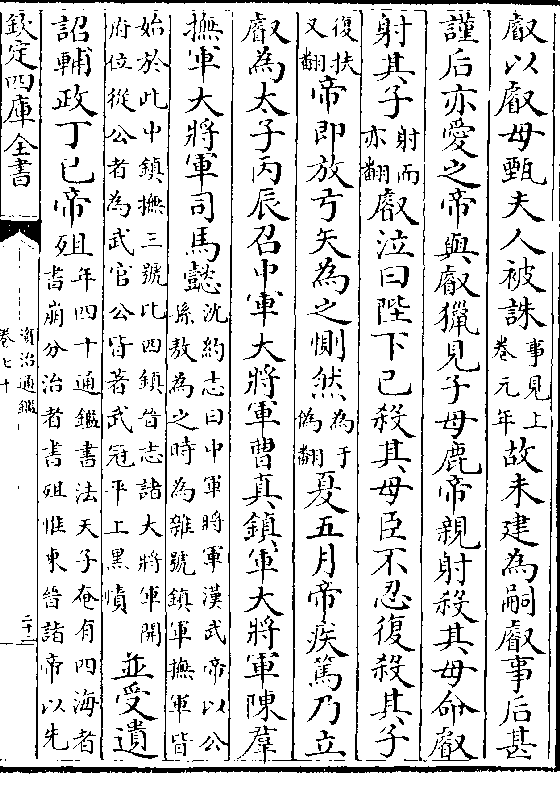 叡以叡母甄夫人被誅事見上卷元年故未建為嗣叡事后甚
謹后亦愛之帝與叡獵見子母鹿帝親射殺其母命叡
射其子射而亦翻叡泣曰陛下已殺其母臣不忍復殺其子
復扶又翻帝即放弓矢為之惻然為于偽翻夏五月帝疾篤乃立
叡為太子丙辰召中軍大將軍曹真鎮軍大將軍陳羣
撫軍大將軍司馬懿沈約志曰中軍將軍漢武帝以公孫敖為之時為雜號鎮軍撫軍皆
始於此中鎮撫三號比四鎮晉志諸大將軍開府位從公者為武官公皆著武冠平上黑幘並受遺
詔輔政丁巳帝殂年四十通鑑書法天子奄有四海者書崩分治者書殂惟東晉諸帝以先
欽定四庫全書
資治通鑑
卷七十
二十二